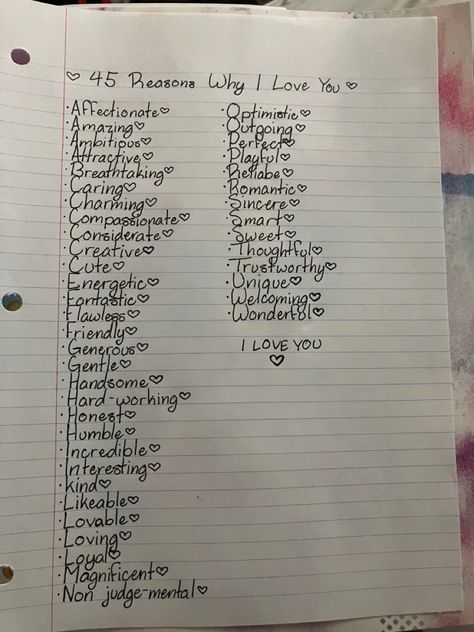 ♡ 45 Reasons Why I Love You ♡
· Affectionate♡
· Amazing♡
· Ambitious♡
· Attractive♡
· Breathtaking♡
· Caring♡
· Charming♡
· Compassionate♡
· Considerate♡
· Creative♡
· Cute♡
· Energetic♡
· Fantastic♡
· Flawless♡
· Friendly♡
· Generous♡
· Gentle♡
· Handsome♡
· Hard-working♡
· Honest♡
· Humble♡
· Incredible♡
· Interesting♡
· Kind♡
· Likeable♡
· Lovable♡
· Loving♡
· Loyal♡
· Magnificent♡
· Non judge-mental♡
· Optimistic♡
· Outgoing♡
· Perfect♡
· Playful♡
· Reliabe♡
· Romantic♡
· Sincere♡
· Smart♡
· Sweet♡
· Thoughtful♡
· Trustworthy♡
· Unique♡
· Welcoming♡
· Wonderful♡
I LOVE YOU
♡